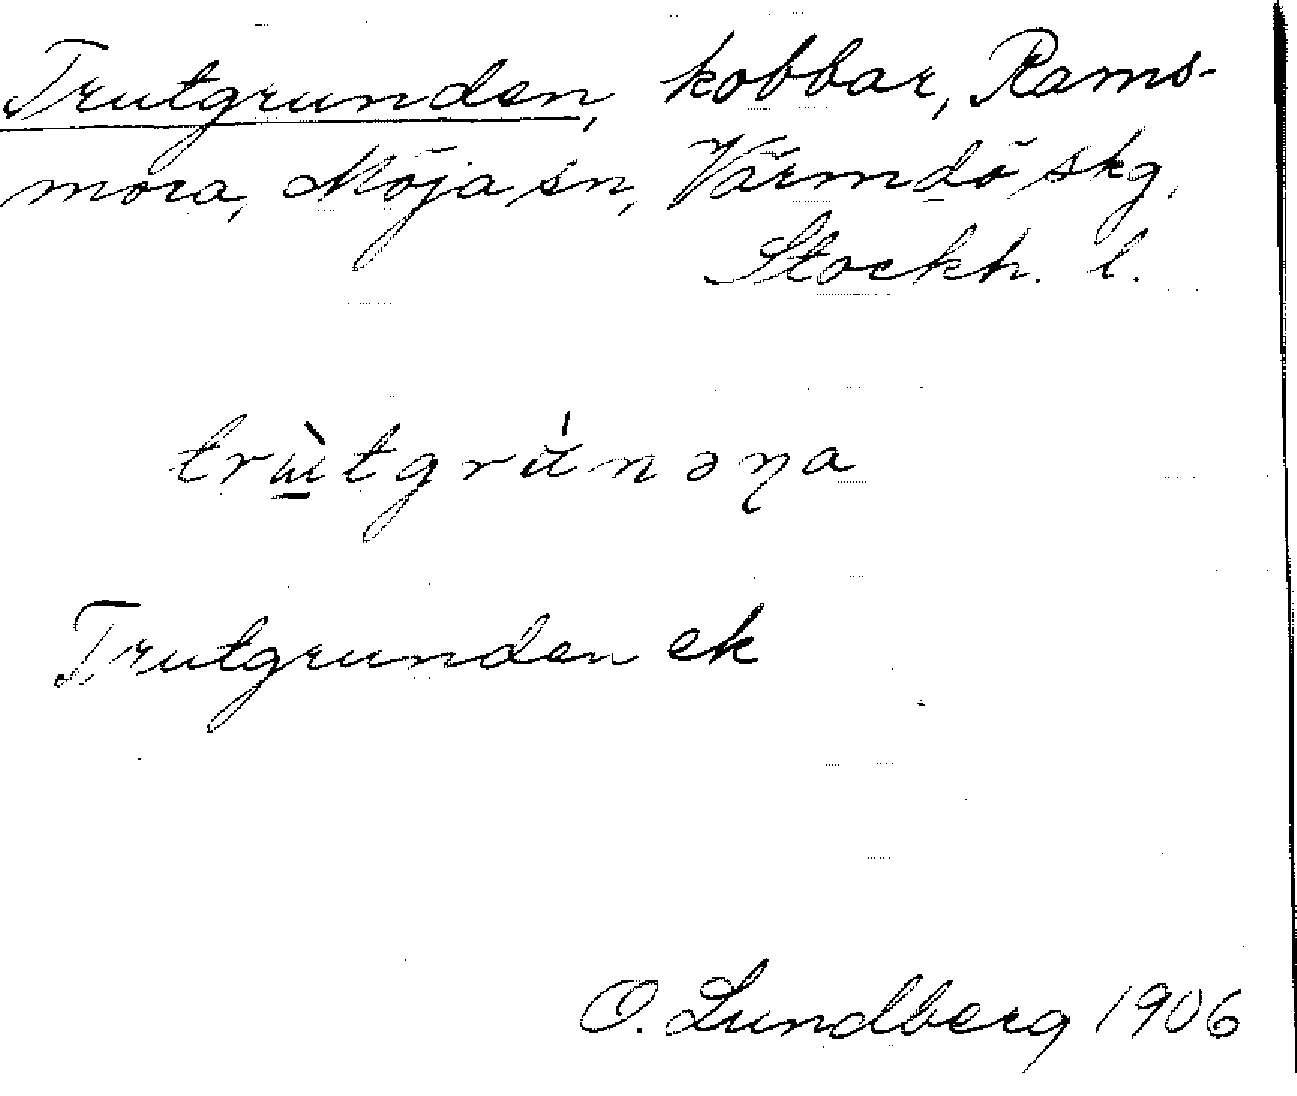 Trutgrunden, kobbar, Rams-
mora, Möja sn, Värmdö skg,
Stockh. l.
trɯ̲̀tgrúnəꞃa
Trutgrunden ek
O. Lundberg 1906